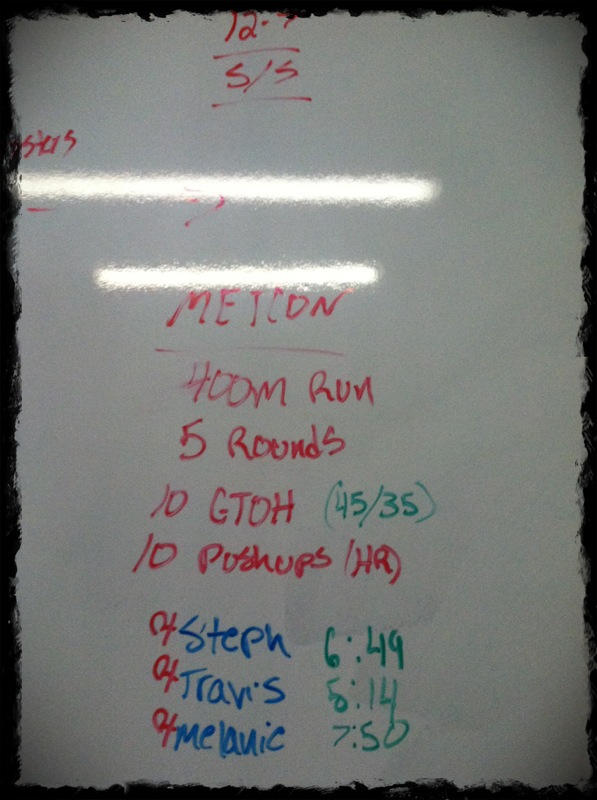 5/5
METCON
400m Run
5 Rounds
10 GTOH (45/35)
10 Pushups (HR)
Steph 6:49
Travis 5:14
Melanie 7:50